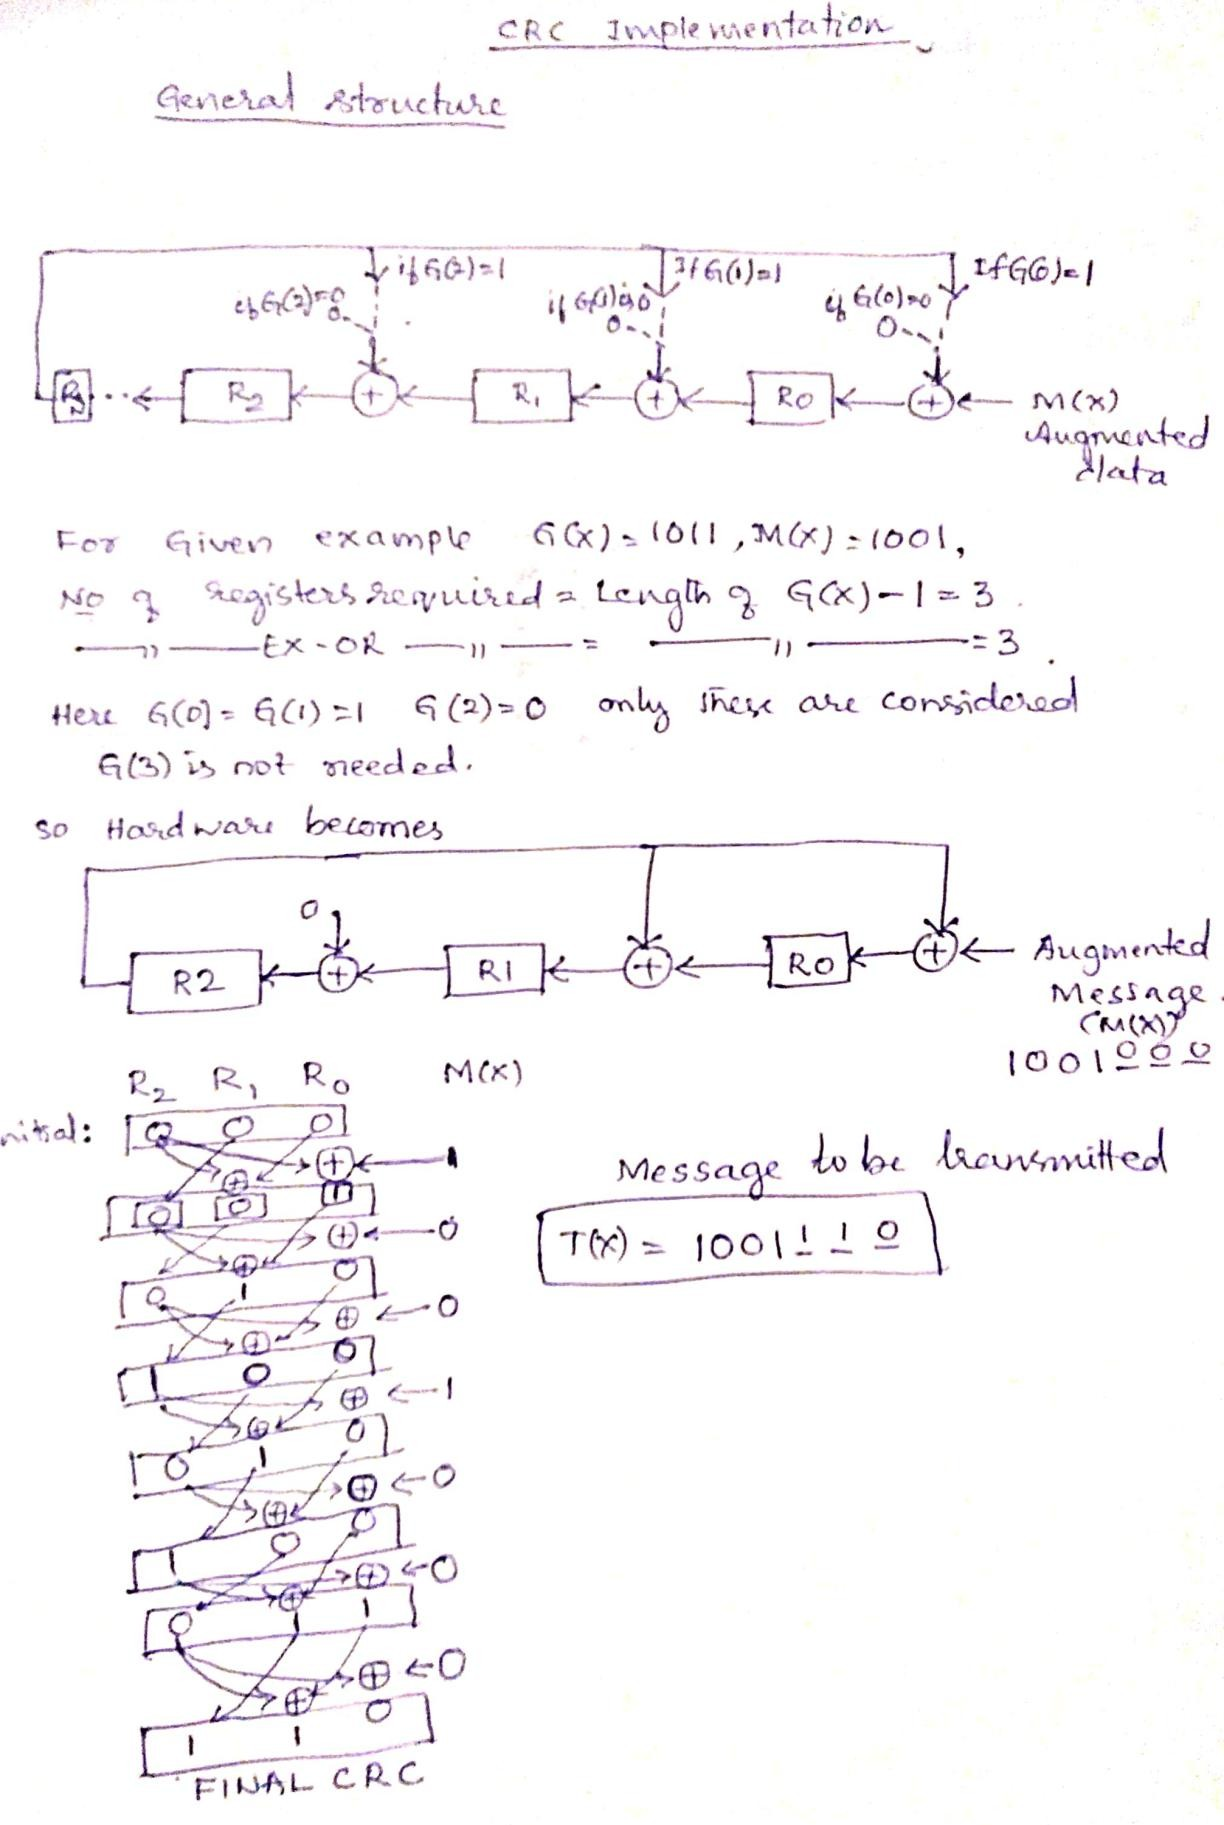 CRC Implementation
General structure
if G(2)=1
If G(1)=1
If G(0)=1
if G(2)=0
0
if G(1) is 0
0
if G(0)=0
0
R2 + R1 + R0 + M(x)
Augmented
data
For Given example G(X)=1011, M(X)=1001,
No of registers required = Length of G(X)-1=3.
—"— EX-OR —"— = —"— =3.
Here G(0)=G(1)=1 G(2)=0 only these are considered
G(3) is not needed.
so Hardware becomes
0
R2 + R1 + R0 + Augmented
Message.
(M(X))
1001000
R2 R1 R0 M(X)
nitial: 0 0 0
⊕ ⊕ ← 1
0 0 1
⊕ ⊕ ← 0
0 1 0
⊕ ⊕ ← 0
1 0 0
⊕ ⊕ ← 1
0 1 0
⊕ ⊕ ← 0
1 0 0
⊕ ⊕ ← 0
0 1 1
⊕ ⊕ ← 0
1 1 0
FINAL CRC
Message to be transmitted
T(X) = 1001110